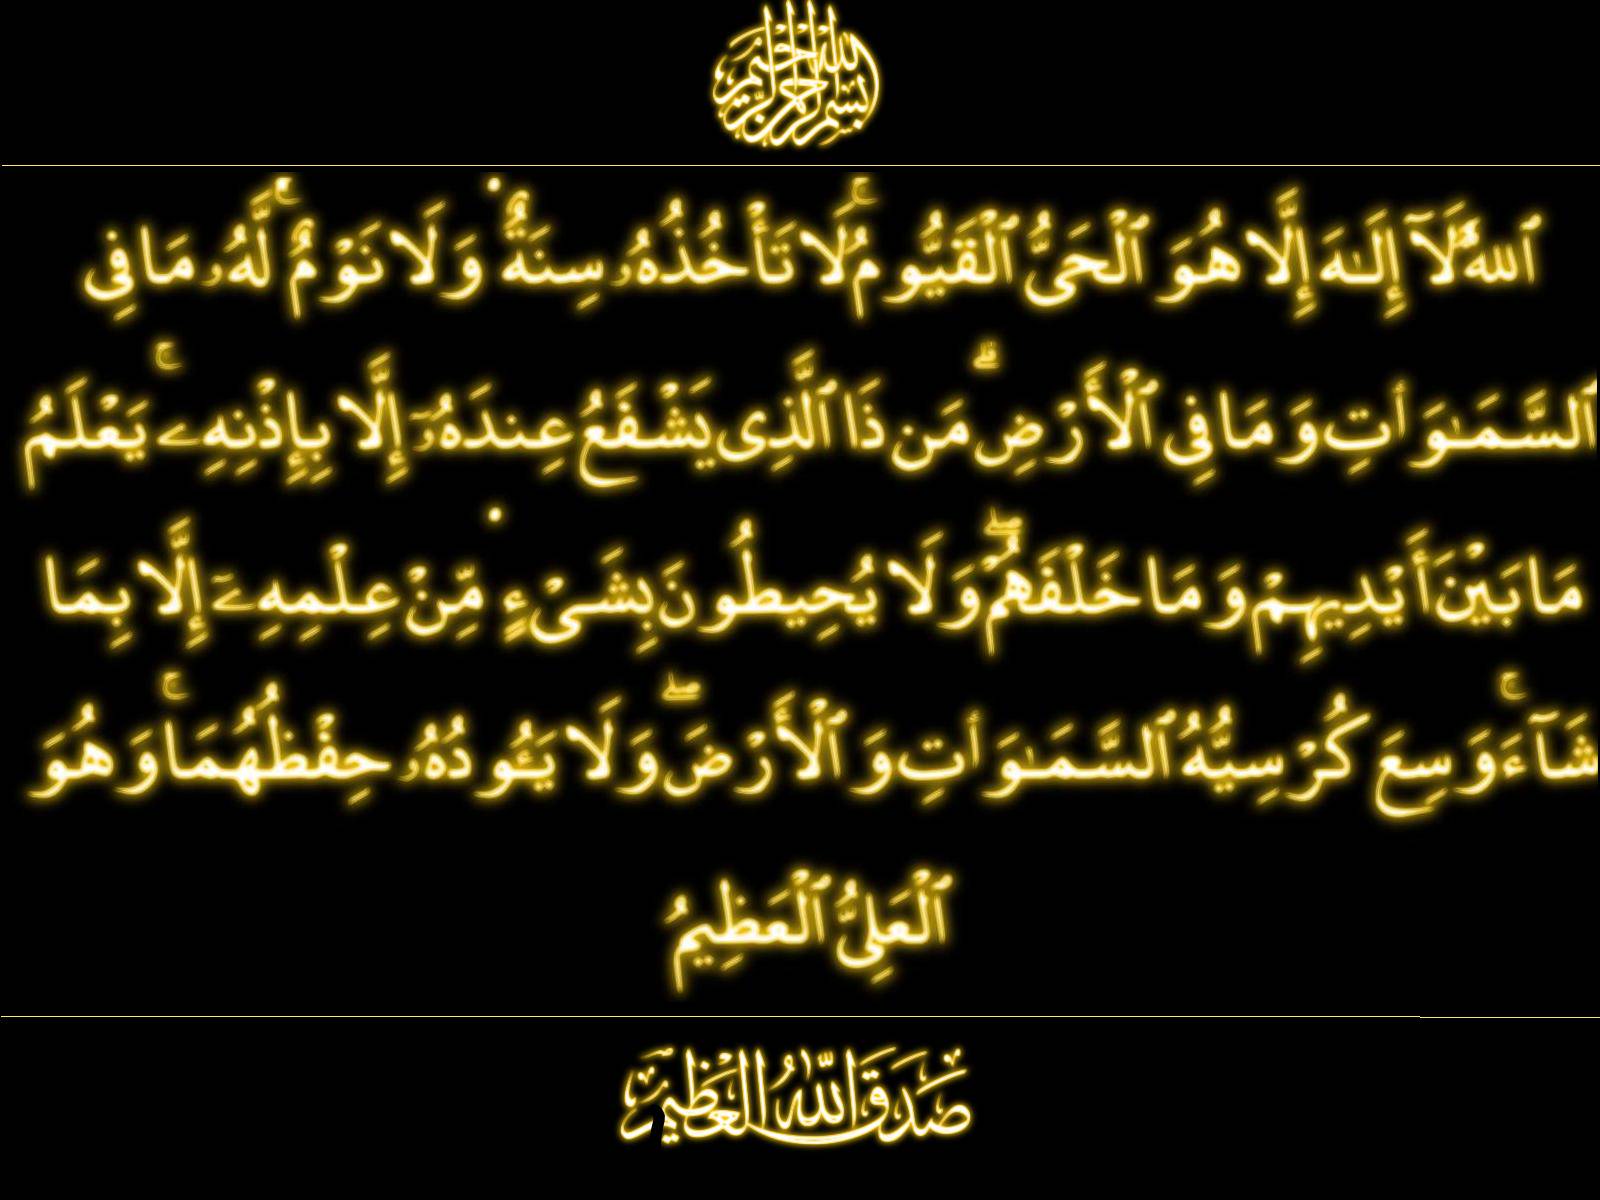 بسم الله الرحمن الرحيم
ٱللَّهُ لَآ إِلَـٰهَ إِلَّا هُوَ ٱلْحَىُّ ٱلْقَيُّومُ ۚ لَا تَأْخُذُهُۥ سِنَةٌ وَلَا نَوْمٌ ۚ لَّهُۥ مَا فِى
ٱلسَّمَـٰوَٲتِ وَمَا فِى ٱلْأَرْضِ ۗ مَن ذَا ٱلَّذِى يَشْفَعُ عِندَهُۥٓ إِلَّا بِإِذْنِهِۦ ۚ يَعْلَمُ
مَا بَيْنَ أَيْدِيهِمْ وَمَا خَلْفَهُمْ ۖ وَلَا يُحِيطُونَ بِشَىْءٍ مِّنْ عِلْمِهِۦٓ إِلَّا بِمَا
شَآءَ ۚ وَسِعَ كُرْسِيُّهُ ٱلسَّمَـٰوَٲتِ وَٱلْأَرْضَ ۖ وَلَا يَـُٔودُهُۥ حِفْظُهُمَا ۚ وَهُوَ
ٱلْعَلِىُّ ٱلْعَظِيمُ
صَدَقَ اللّٰهُ العَظِيم